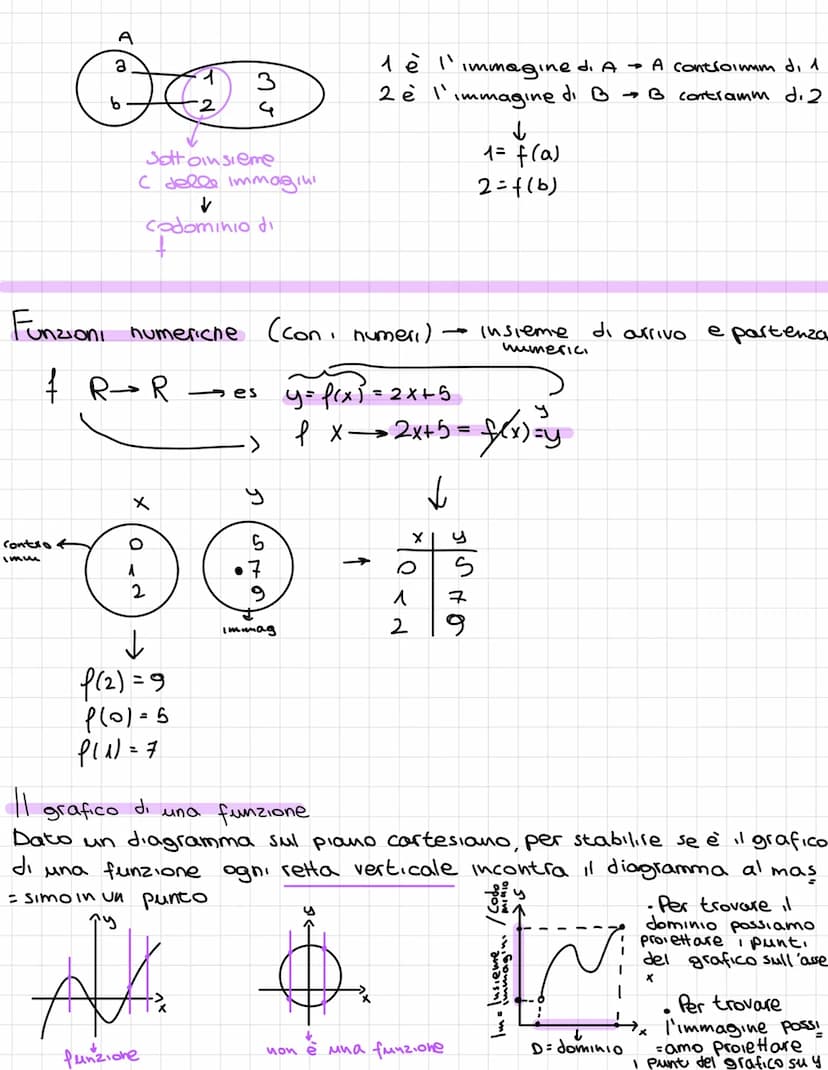 A
a
b
1
2
3
4
1 è l'immagine di A → A controimm di 1
2 è l'immagine di B → B contramm di 2
↓
1 = f(a)
2 = f(b)
Sottoinsieme
C delle immagini
↓
codominio di
f
Funzioni numeriche (con i numeri) → insieme di arrivo e partenza
numerici
f R→R → es y=f(x) = 2x+5
f x → 2x+5 = f(x) = y
y
x
y
contro
imm
0
1
2
5
7
9
immag
→
x | y
0 | 5
1 | 7
2 | 9
f(2) = 9
f(0) = 5
f(1) = 7
Il grafico di una funzione
Dato un diagramma sul piano cartesiano, per stabilire se è il grafico
di una funzione ogni retta verticale incontra il diagramma al mas
= simo in un punto
y
x
funzione
y
x
non è una funzione
Im = Insieme immagini / Codominio
y
x
D = dominio
· Per trovare il
dominio possiamo
proiettare i punti
del grafico sull'asse
x
· Per trovare
l'immagine possi
=amo proiettare
i punti del grafico su y